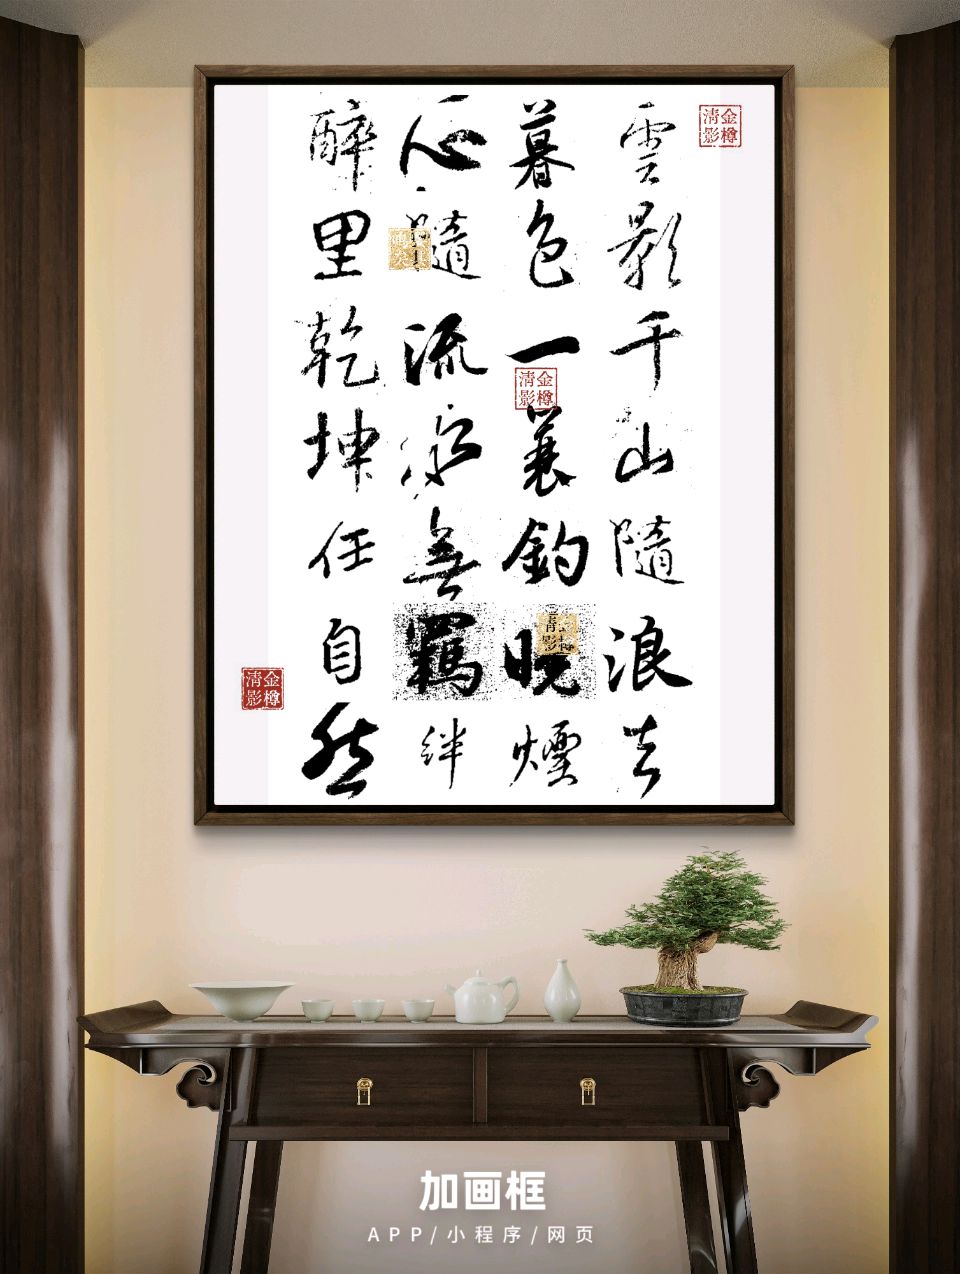 雲影千山隨浪去
暮色一蓑釣曉煙
心隨流水無羈絆
醉里乾坤任自然
金樽清影
金樽清影
金樽清影
加画框
APP/小程序/网页